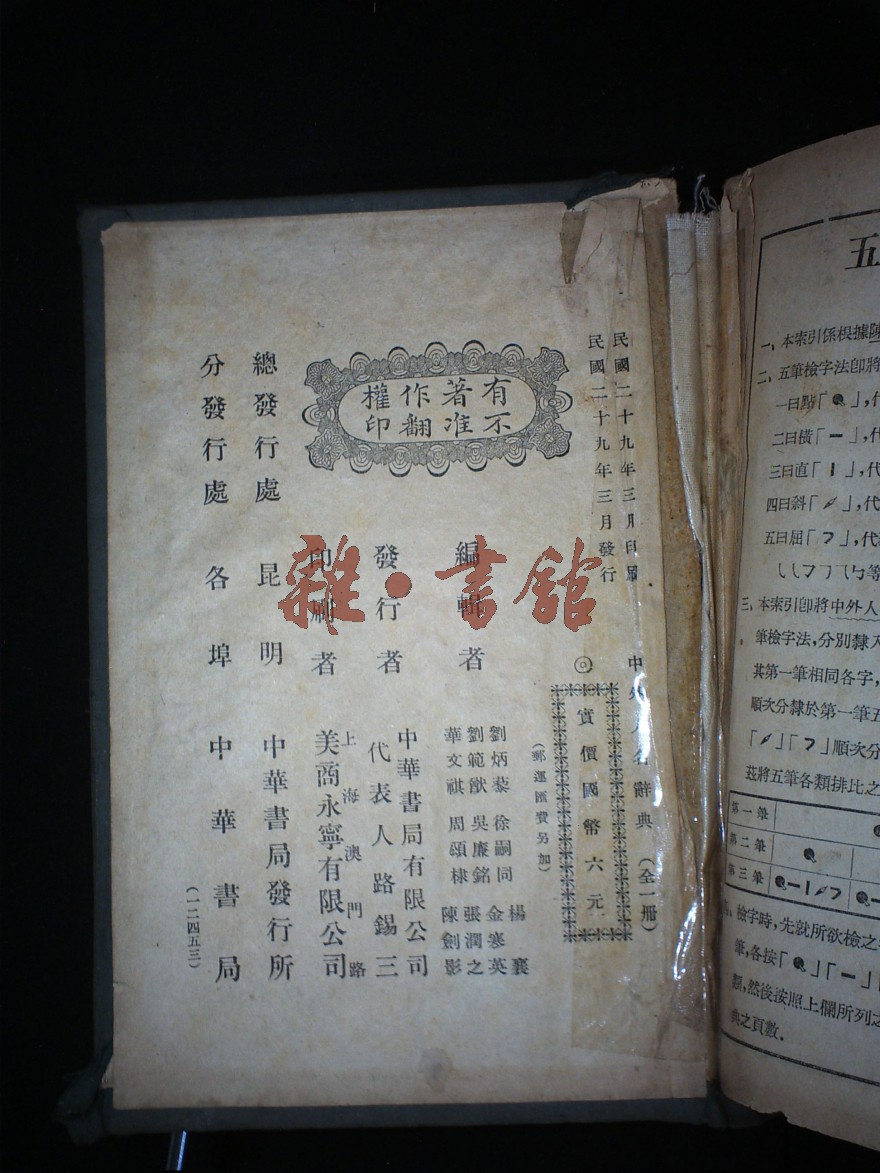 民國二十九年三月印刷
民國二十九年三月發行
中外人名辭典（全一冊）
◎實價國幣六元
（郵運匯費另加）
有著作權
不准翻印
編輯者
楊襄
劉炳藜 徐嗣同 金寒英
劉範猷 吳廉銘 張潤之
華文祺 周頌棣 陳劍影
發行者 中華書局有限公司
代表人路錫三
印刷者 上海澳門路
美商永寧有限公司
總發行處 昆明 中華書局發行所
分發行處 各埠 中華書局
（一二四五三）
雜·書館
五
一、本索引係根據陳
二、五筆檢字法卽將
一曰點「」,代
二曰橫「一」,代
三曰直「丨」,代
四曰斜「」,代
五曰屈「フ」,代
三、本索引卽將中外人
筆檢字法,分別隸入
其第一筆相同各字,
順次分隸於第一筆五
「」「フ」順次分
茲將五筆各類排比之
第一筆
第二筆
第三筆
檢字時,先就所欲檢之
筆,各按「」「一」
類,然後按照上欄所列之
典之頁數.